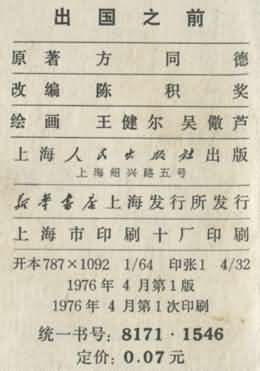 出国之前
原著 方同德
改编 陈积奖
绘画 王健尔 吴儆芦
上海人民出版社出版
上海绍兴路五号
新华书店上海发行所发行
上海市印刷十厂印刷
开本787×1092 1/64 印张1 4/32
1976年4月第1版
1976年4月第1次印刷
统一书号：8171·1546
定价：0.07元